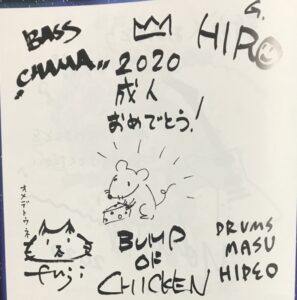 BASS
CHAMA
G.
HIRO
2020
成人
おめでとう!
オメデトウネ
fuji
BUMP
OF
CHICKEN
DRUMS
MASU
HIDEO